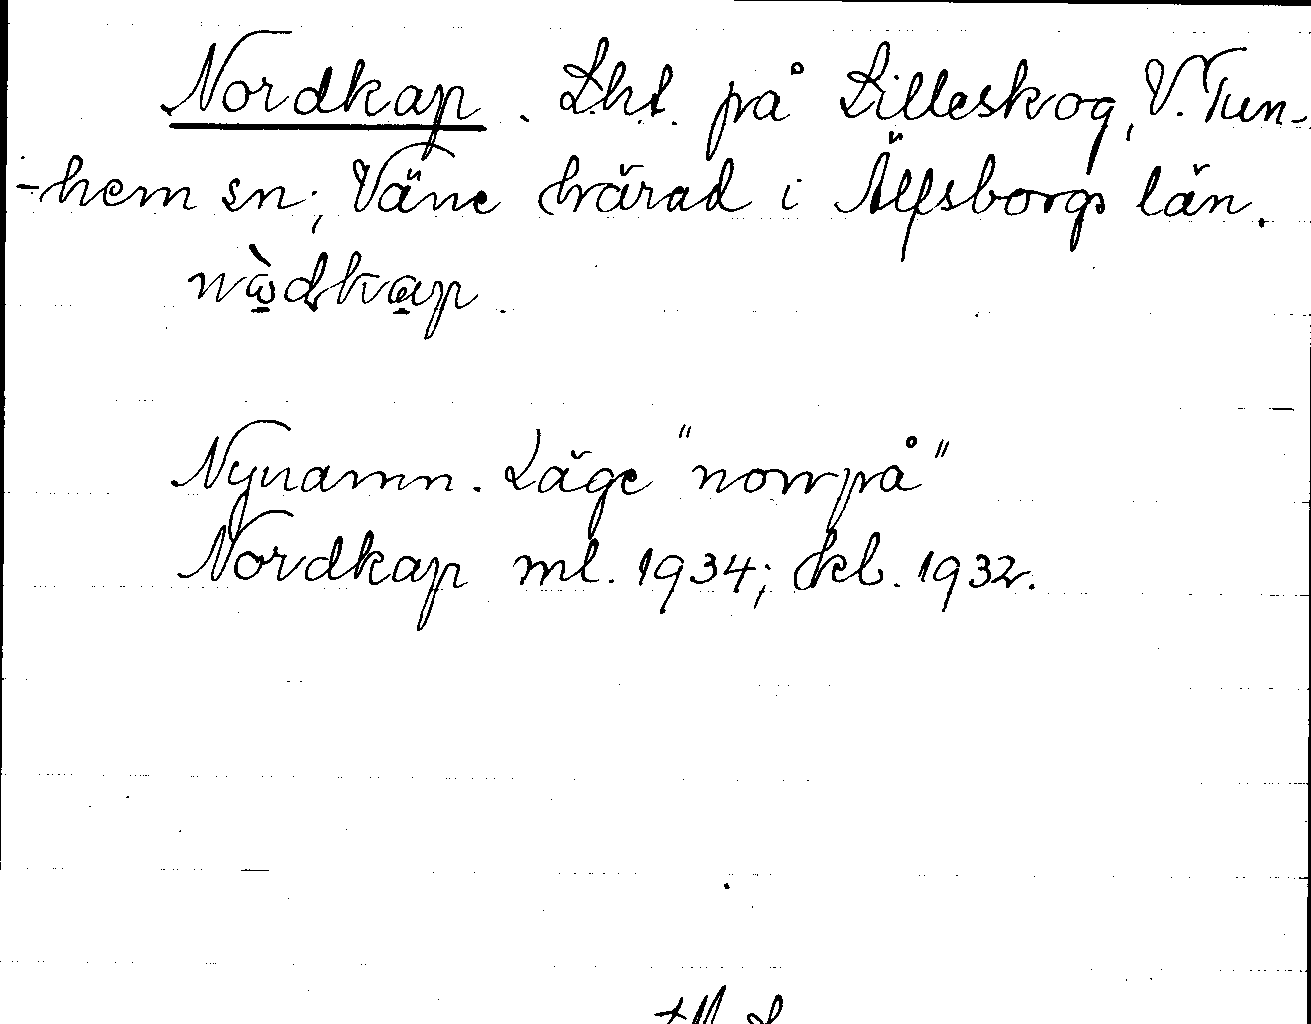 Nordkap. Lht. på Lilleskog, V. Tun-
-hem sn; Väne härad i Älfsborgs län.
Nynamn. Läge "norrpå"
Nordkap ml. 1934; kb. 1932.